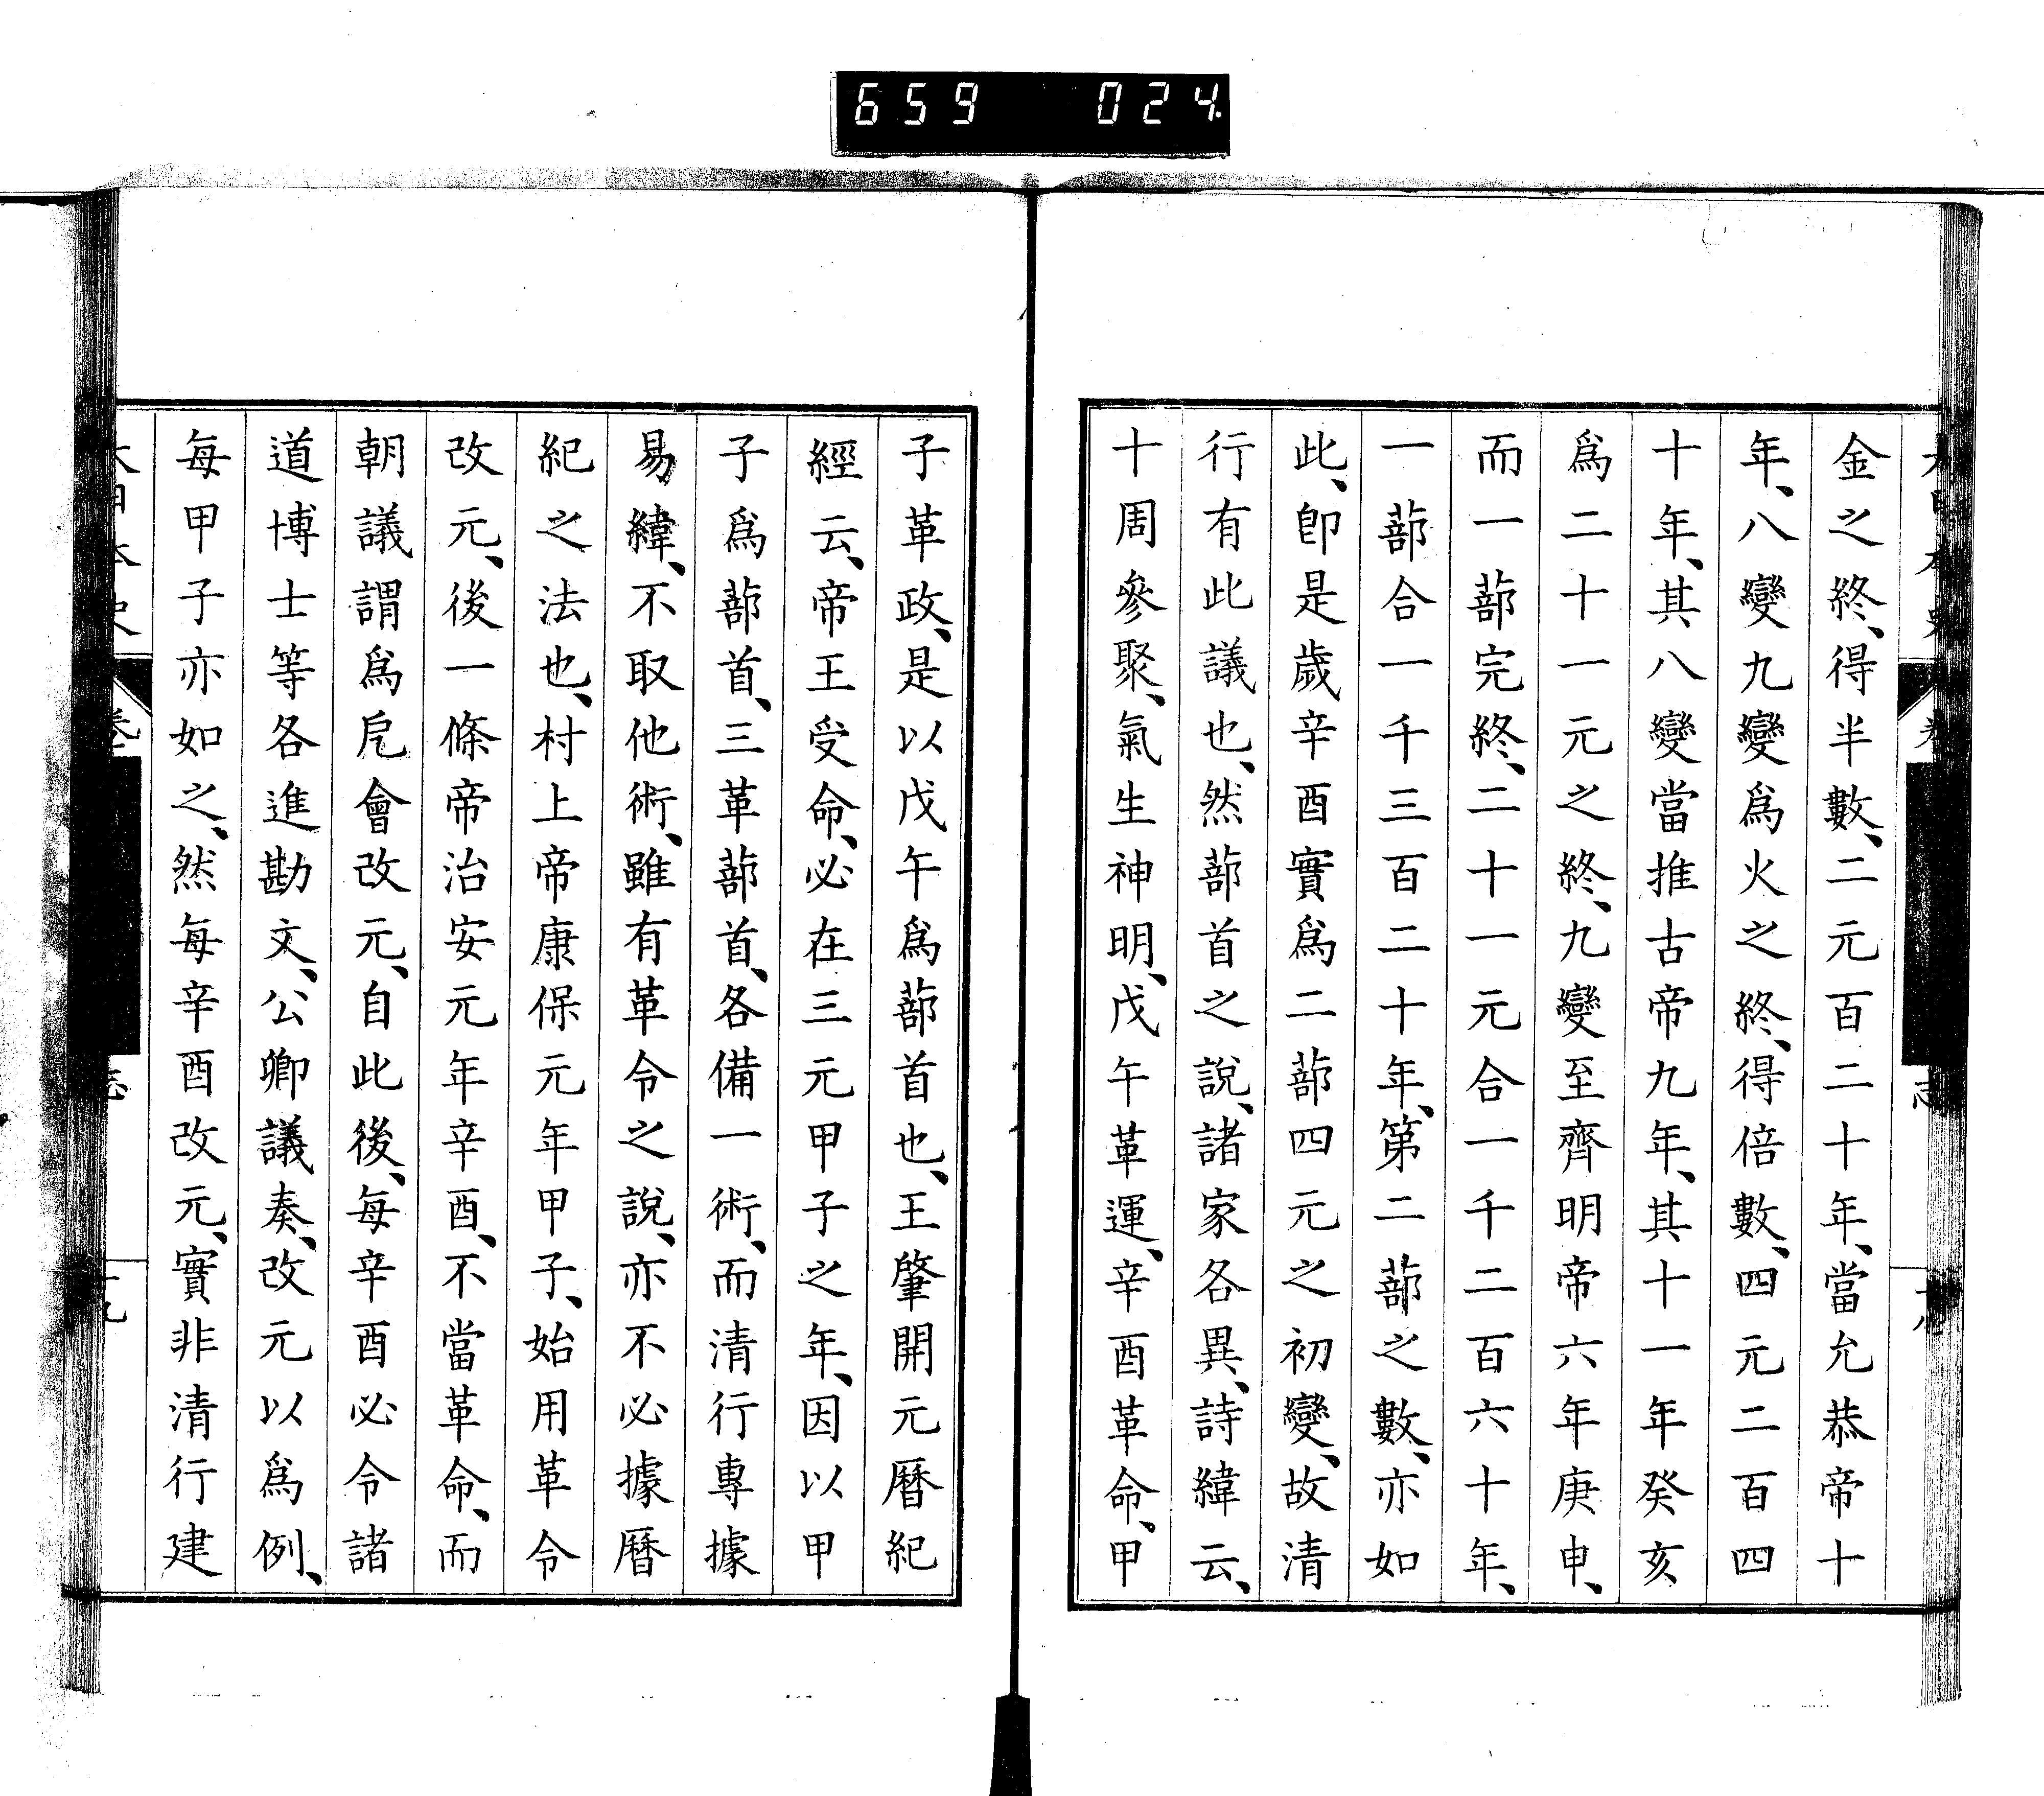 659 024
金之終、得半數、二元百二十年、當允恭帝十
年、八變九變爲火之終、得倍數、四元二百四
十年、其八變當推古帝九年、其十一年癸亥
爲二十一元之終、九變至齊明帝六年庚申、
而一蔀完終、二十一元合一千二百六十年、
一蔀合一千三百二十年、第二蔀之數、亦如
此、卽是歲辛酉實爲二蔀四元之初變、故清
行有此議也、然蔀首之說、諸家各異、詩緯云、
十周參聚、氣生神明、戊午革運、辛酉革命、甲
子革政、是以戊午爲蔀首也、王肇開元曆紀
經云、帝王受命、必在三元甲子之年、因以甲
子爲蔀首、三革蔀首、各備一術、而清行專據
易緯、不取他術、雖有革令之說、亦不必據曆
紀之法也、村上帝康保元年甲子、始用革令
改元、後一條帝治安元年辛酉、不當革命、而
朝議謂爲戹會改元、自此後、每辛酉必令諸
道博士等各進勘文、公卿議奏、改元以爲例、
每甲子亦如之、然每辛酉改元、實非清行建